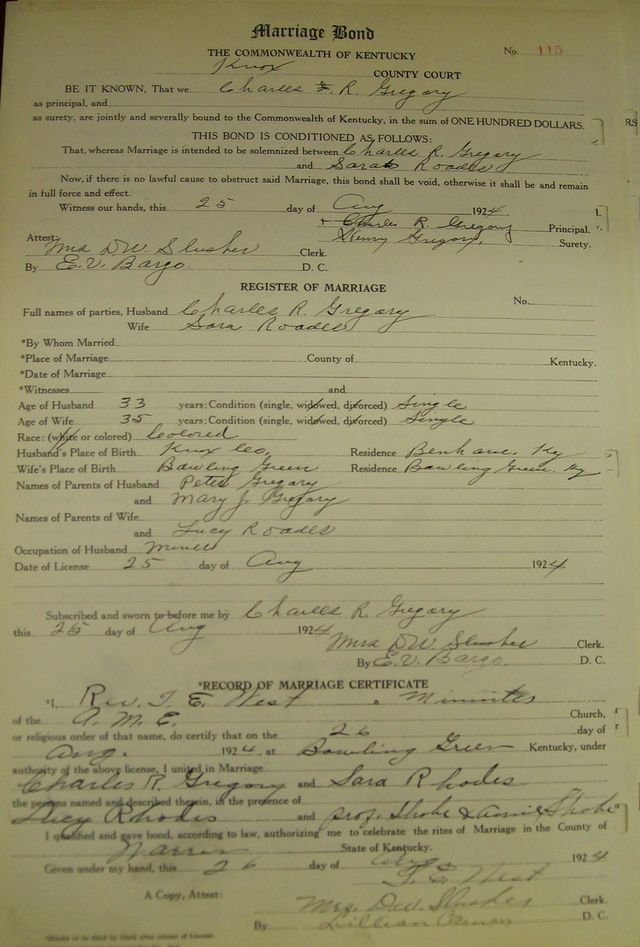 Marriage Bond
THE COMMONWEALTH OF KENTUCKY No. 115
Knox COUNTY COURT
BE IT KNOWN, That we Charles R. Gregory
as principal, and
as surety, are jointly and severally bound to the Commonwealth of Kentucky, in the sum of ONE HUNDRED DOLLARS.
THIS BOND IS CONDITIONED AS FOLLOWS:
That, whereas Marriage is intended to be solemnized between Charles R. Gregory
and Sarah Roades
Now, if there is no lawful cause to obstruct said Marriage, this bond shall be void, otherwise it shall be and remain
in full force and effect.
Witness our hands, this 25 day of Aug 1924.
+ Charles R. Gregory Principal.
Henry Gregory. Surety.
Attest:
Mrs DW Slusher Clerk.
By E.V. Bargo D. C.
REGISTER OF MARRIAGE
No.
Full names of parties, Husband Charles R. Gregory
Wife Sara Roades
*By Whom Married
*Place of Marriage County of Kentucky.
*Date of Marriage
*Witnesses and
Age of Husband 33 years; Condition (single, widowed, divorced) Single
Age of Wife 35 years; Condition (single, widowed, divorced) Single
Race: (white or colored) Colored
Husband's Place of Birth Knox Co. Residence Benham. Ky
Wife's Place of Birth Bowling Green Residence Bowling Green. Ky
Names of Parents of Husband Peter Gregory
and Mary J. Gregory
Names of Parents of Wife
and Lucy Roades
Occupation of Husband Miner
Date of License 25 day of Aug 1924.
Subscribed and sworn to before me by Charles R. Gregory
this 25 day of Aug 1924
Mrs DW Slusher Clerk.
By E.V. Bargo. D. C.
*RECORD OF MARRIAGE CERTIFICATE
*I, Rev. T. E. West a Minnites
of the A. M. E. Church,
or religious order of that name, do certify that on the 26 day of
Aug. 1924, at Bowling Green Kentucky, under
authority of the above license, I united in Marriage
Charles R. Gregory and Sara Rhodes
the persons named and described therein, in the presence of
Lucy Rhodes and prof. Shobe & Annie Shobe
I qualified and gave bond, according to law, authorizing me to celebrate the rites of Marriage in the County of
Warren State of Kentucky.
Given under my hand, this 26 day of Aug 1924
T. E. West
A Copy, Attest: Mrs. D.W. Slusher Clerk.
By Lillian D. C.